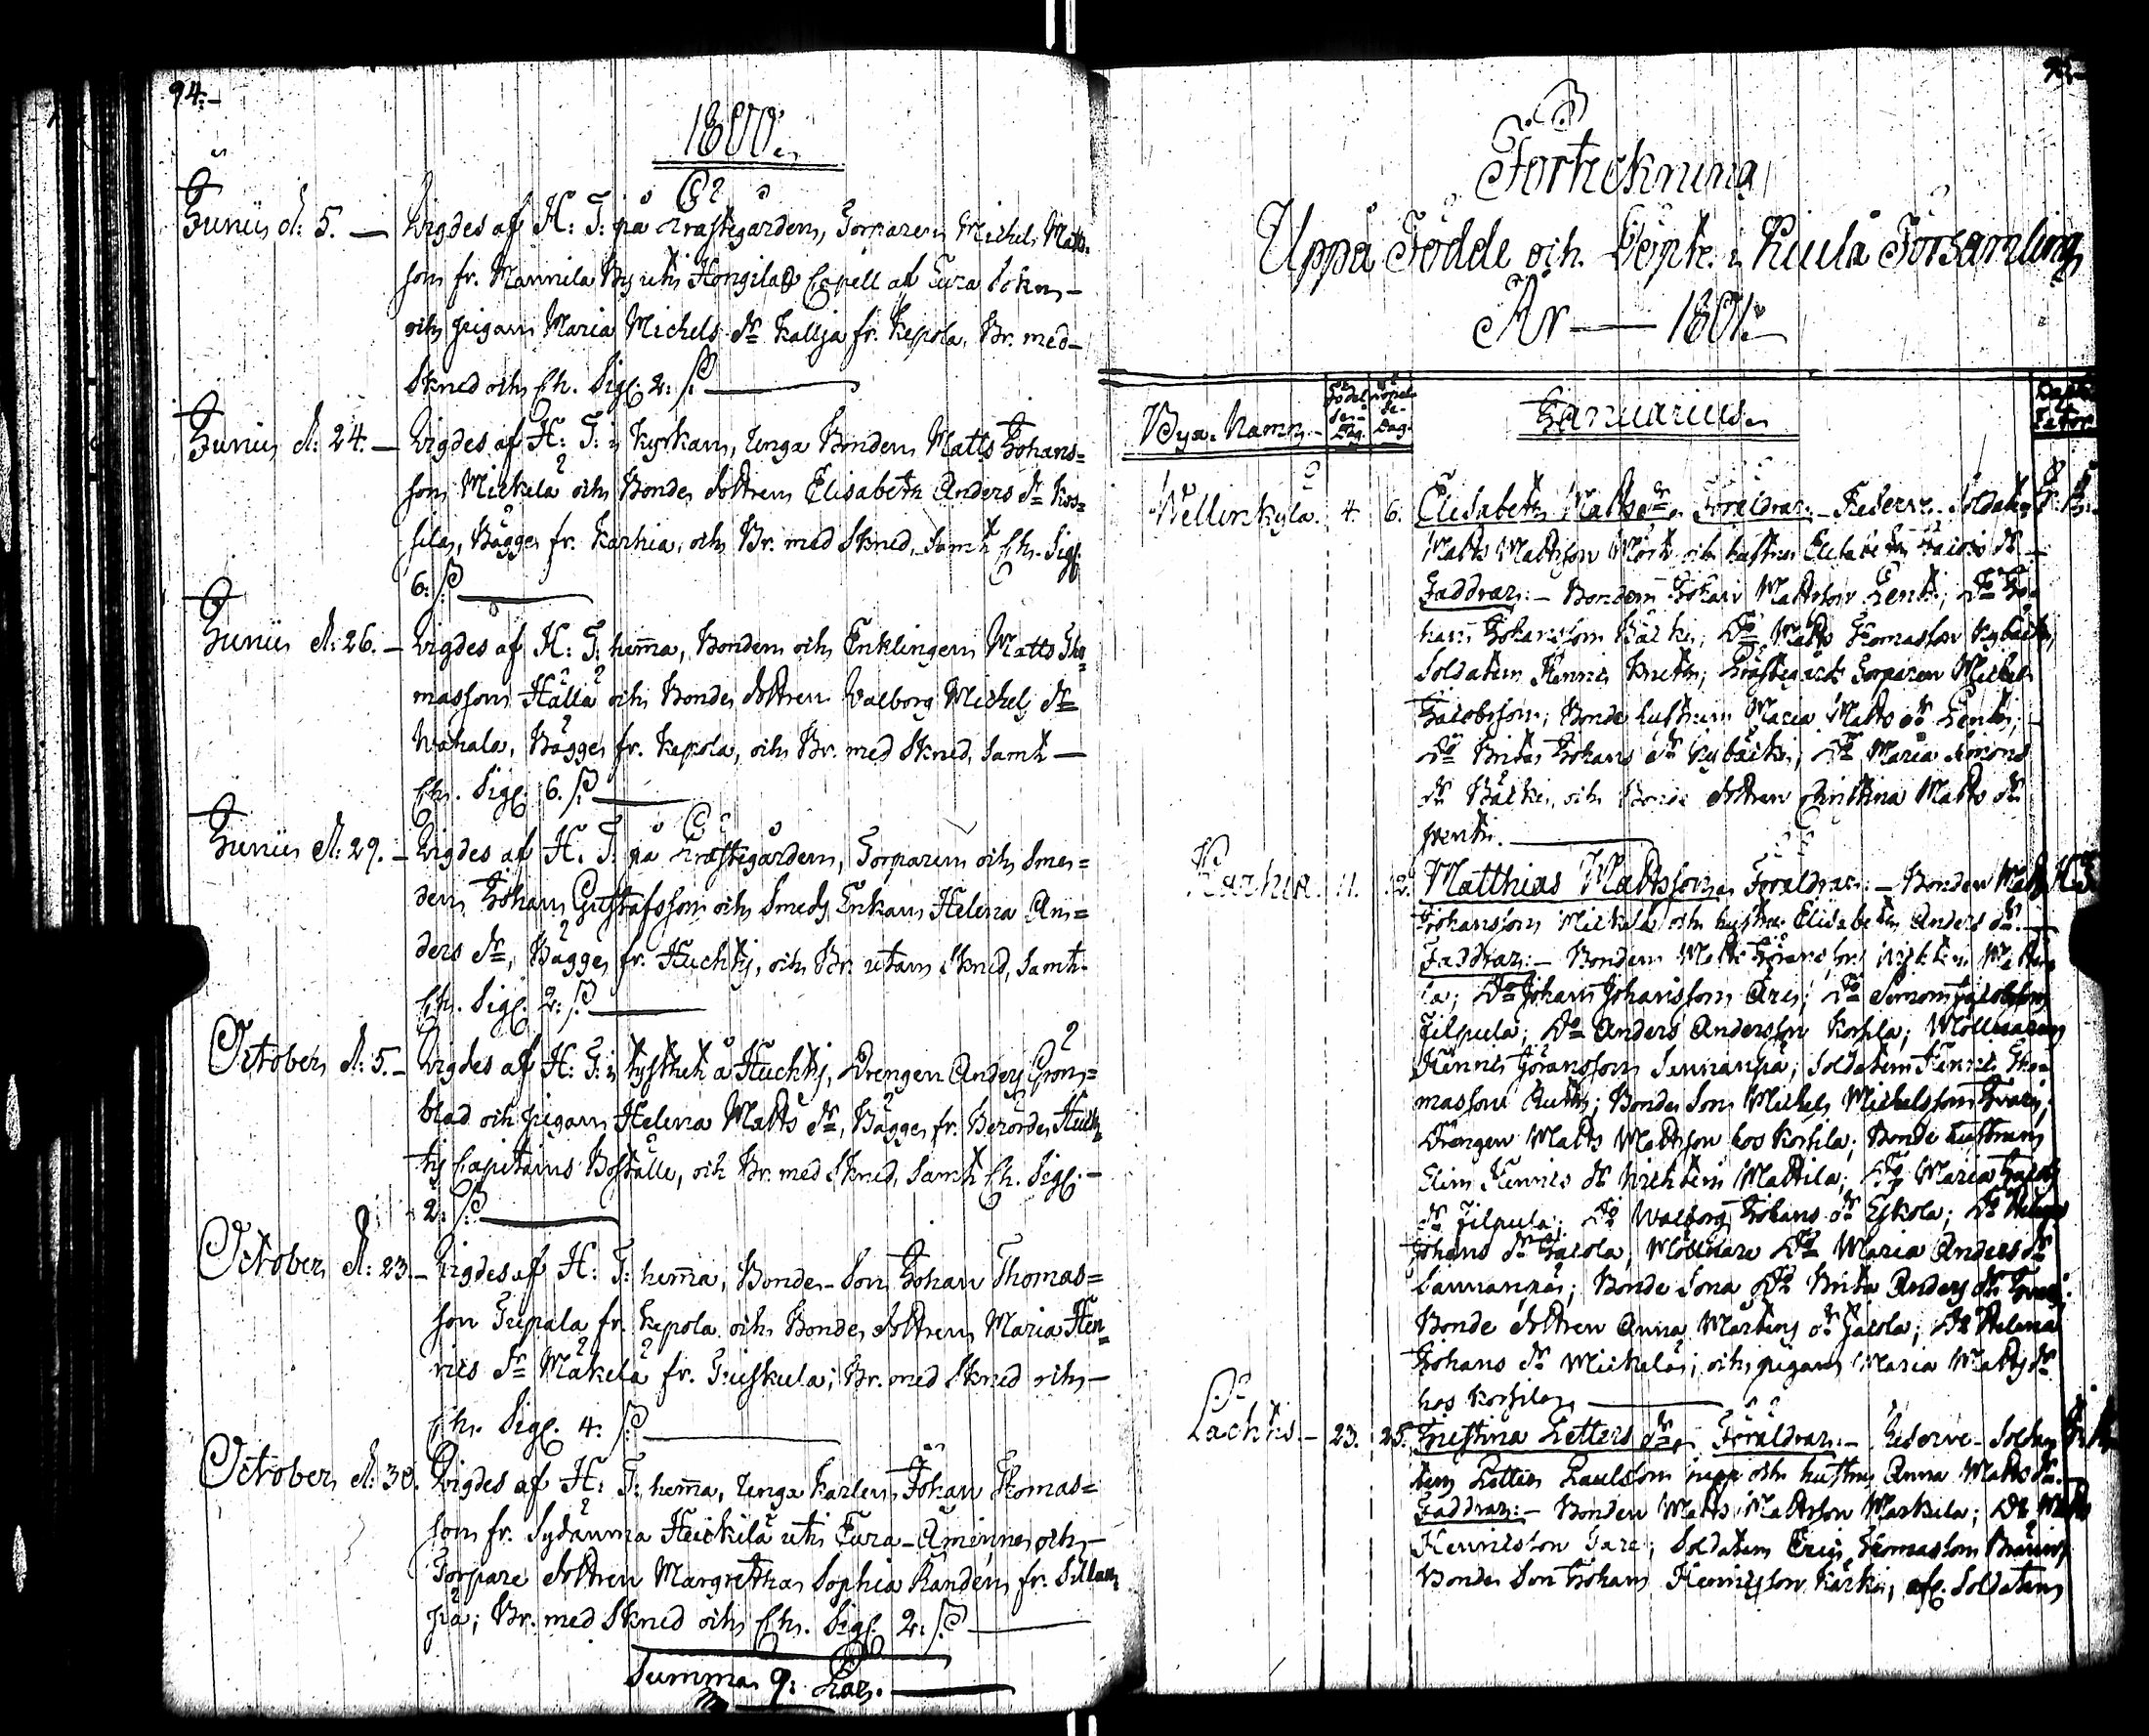 94.-
1800.
Junius d: 5. — Vigdes af H: T: på Prästegården, Torparen Michel Matts-
son fr. Mannila By uti Hongilax Capell af Eura Sokn,-
och pigan Maria Michels dr Kallja fr. Kepola, Br. med-
Skrud och Ch. Sigf. 2: sk.
Junius d: 24. — Vigdes af H: T: i Kyrkan, Unga Bonden Matts Johans=
son Mickilä och Bonde dottren Elisabeth Anders dr Kos=
sila, Bägge fr. Karhia, och Br. med Skrud, Samt Ch. Sigf.
6: sk.
Junius d: 26. — Vigdes af H: T: hema, Bonden och Enklingen Matts Tho=
masson Hälla och Bonde dottren Valborg Michels dr
Wahala, Bägge fr. Kepola, och Br. med Skrud, Samt —
Ch. Sigf. 6. sk.
Junius d: 29. — Vigdes af H. T: på Prästegården, Torparen och Sme=
den Johan Gustafsson och Smeds Enkan Helena An=
ders dr, Bägge fr. Huchtis, och Br. utan Skrud, Samt
Ch. Sigf. 2: sk.
October d: 5. — Vigdes af H: T: i tysthet å Huchtis, Drengen Anders Grön=
blad och pigan Helena Matts dr, Bägge fr. Berörde Huch=
tis Capitains Boställe, och Br. med Skrud, Samt Ch. Sigf. —
2: sk.
October d: 23. — Vigdes af H: T: hema, Bonde-Son Johan Thomas=
son Tupala fr. Kepola och Bonde dottren Maria Hen=
rics dr Mäkelä fr. Tuiskula; Br. med Skrud och —
Ch. Sigf. 4: sk.
October d: 30. Vigdes af H: T: hema, Unga Karlen Johan Thomas=
son fr. Sydänma Heickilä uti Eura-Åminne och —
Torpare dottren Margretha Sophia Randen fr. Sillan=
pä; Br. med Skrud och Ch. Sigf. 2: sk.
Summa 9: Par.
Förteckning
Uppå Födde och Döpte i Kiula Församling
År — 1801.
Bya-Namn. Födel-se-Dag. Döpel-se-Dag. Januarius.
Wellinkylä. 4. 6. Elisabeth Matts dr. Föräldrar: - Reserve-Soldaten
Matts Mattsson Mört och hustru Elisabeth Jacobs dr —
Faddrar: - Bonden Johan Mattsson Pentti; Do Jo=
han Johansson Bäcki; Do Matts Thomasson Kybäcki,
Soldaten Henric ; Prästegårds Torparen Michel
Jacobsson; Bonde hustrun Maria Matts dr Pentti; —
Do Brita Johans dr Kybäcki; Do Maria Simons
dr Bäcki, och Bonde dottren Christina Matts dr
Pentti.
Karhia. 11. 12. Matthias Mattsson. Föräldrar: - Bonden Matts H: T:
Johansson Mickilä och hustru Elisabeth Anders dr. —
Faddrar: - Bonden Matts Göransson Matti=
la; Do Johan Johansson Äres; Do Simon Jacobsson
Filpula; Do Anders Andersson Kossila; Möllnaren
Henric Göransson Sannanpä; Soldaten Henric Tho=
masson Rutti; Bonde Son Michel Michelsson ;
Drengen Matts Mattsson hos Kossila; Bonde hustrun
Elin Henrics dr Mattila; Do Maria Jacobs
dr Filpula; Do Walborg Johans dr Eskola; Do Helena
Johans dr Jacola; Möllnare Do Maria Anders dr
Sannanpä; Bonde Sona Do Brita Anders dr
Bonde dottren Anna Martins dr Jacola; Do Helena
Johans dr Mickilä; och pigan Maria Matts dr
hos Kossila.
Lachtis. — 23. 25. Christina Petters dr. Föräldrar: - Reserve-Solda=
ten Petter Paulsson och hustru Anna Matts dr. —
Faddrar: - Bonden Matts Mattsson Markila; Do Matts
Henricsson ; Soldaten Eric Thomasson
Bonde Son Johan Henricsson Kärki, afs. Soldatens